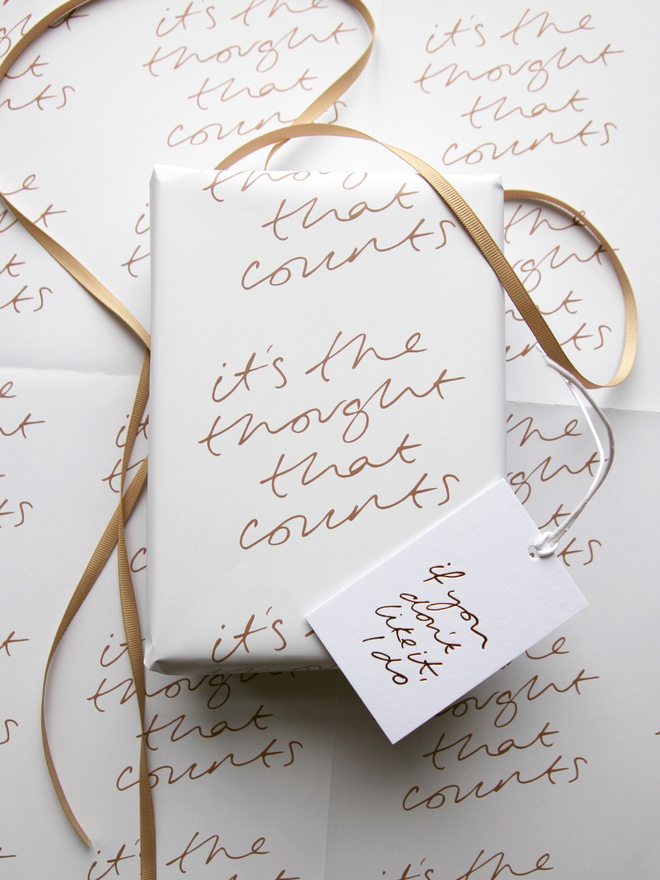 it's the
thought
that
counts
it's the
thought
that
counts
thought
that
counts
it's the
thought
that
counts
it's
if you
don't
like it,
I do
thought
that
counts
thought
that
counts
it's the
it's the